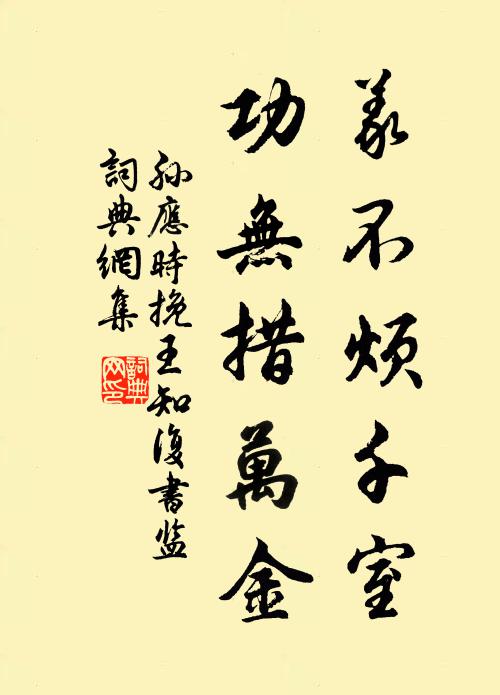 義不煩千室
功無措萬金
孙應時挽王知復書监
詞典網集
詞典网印